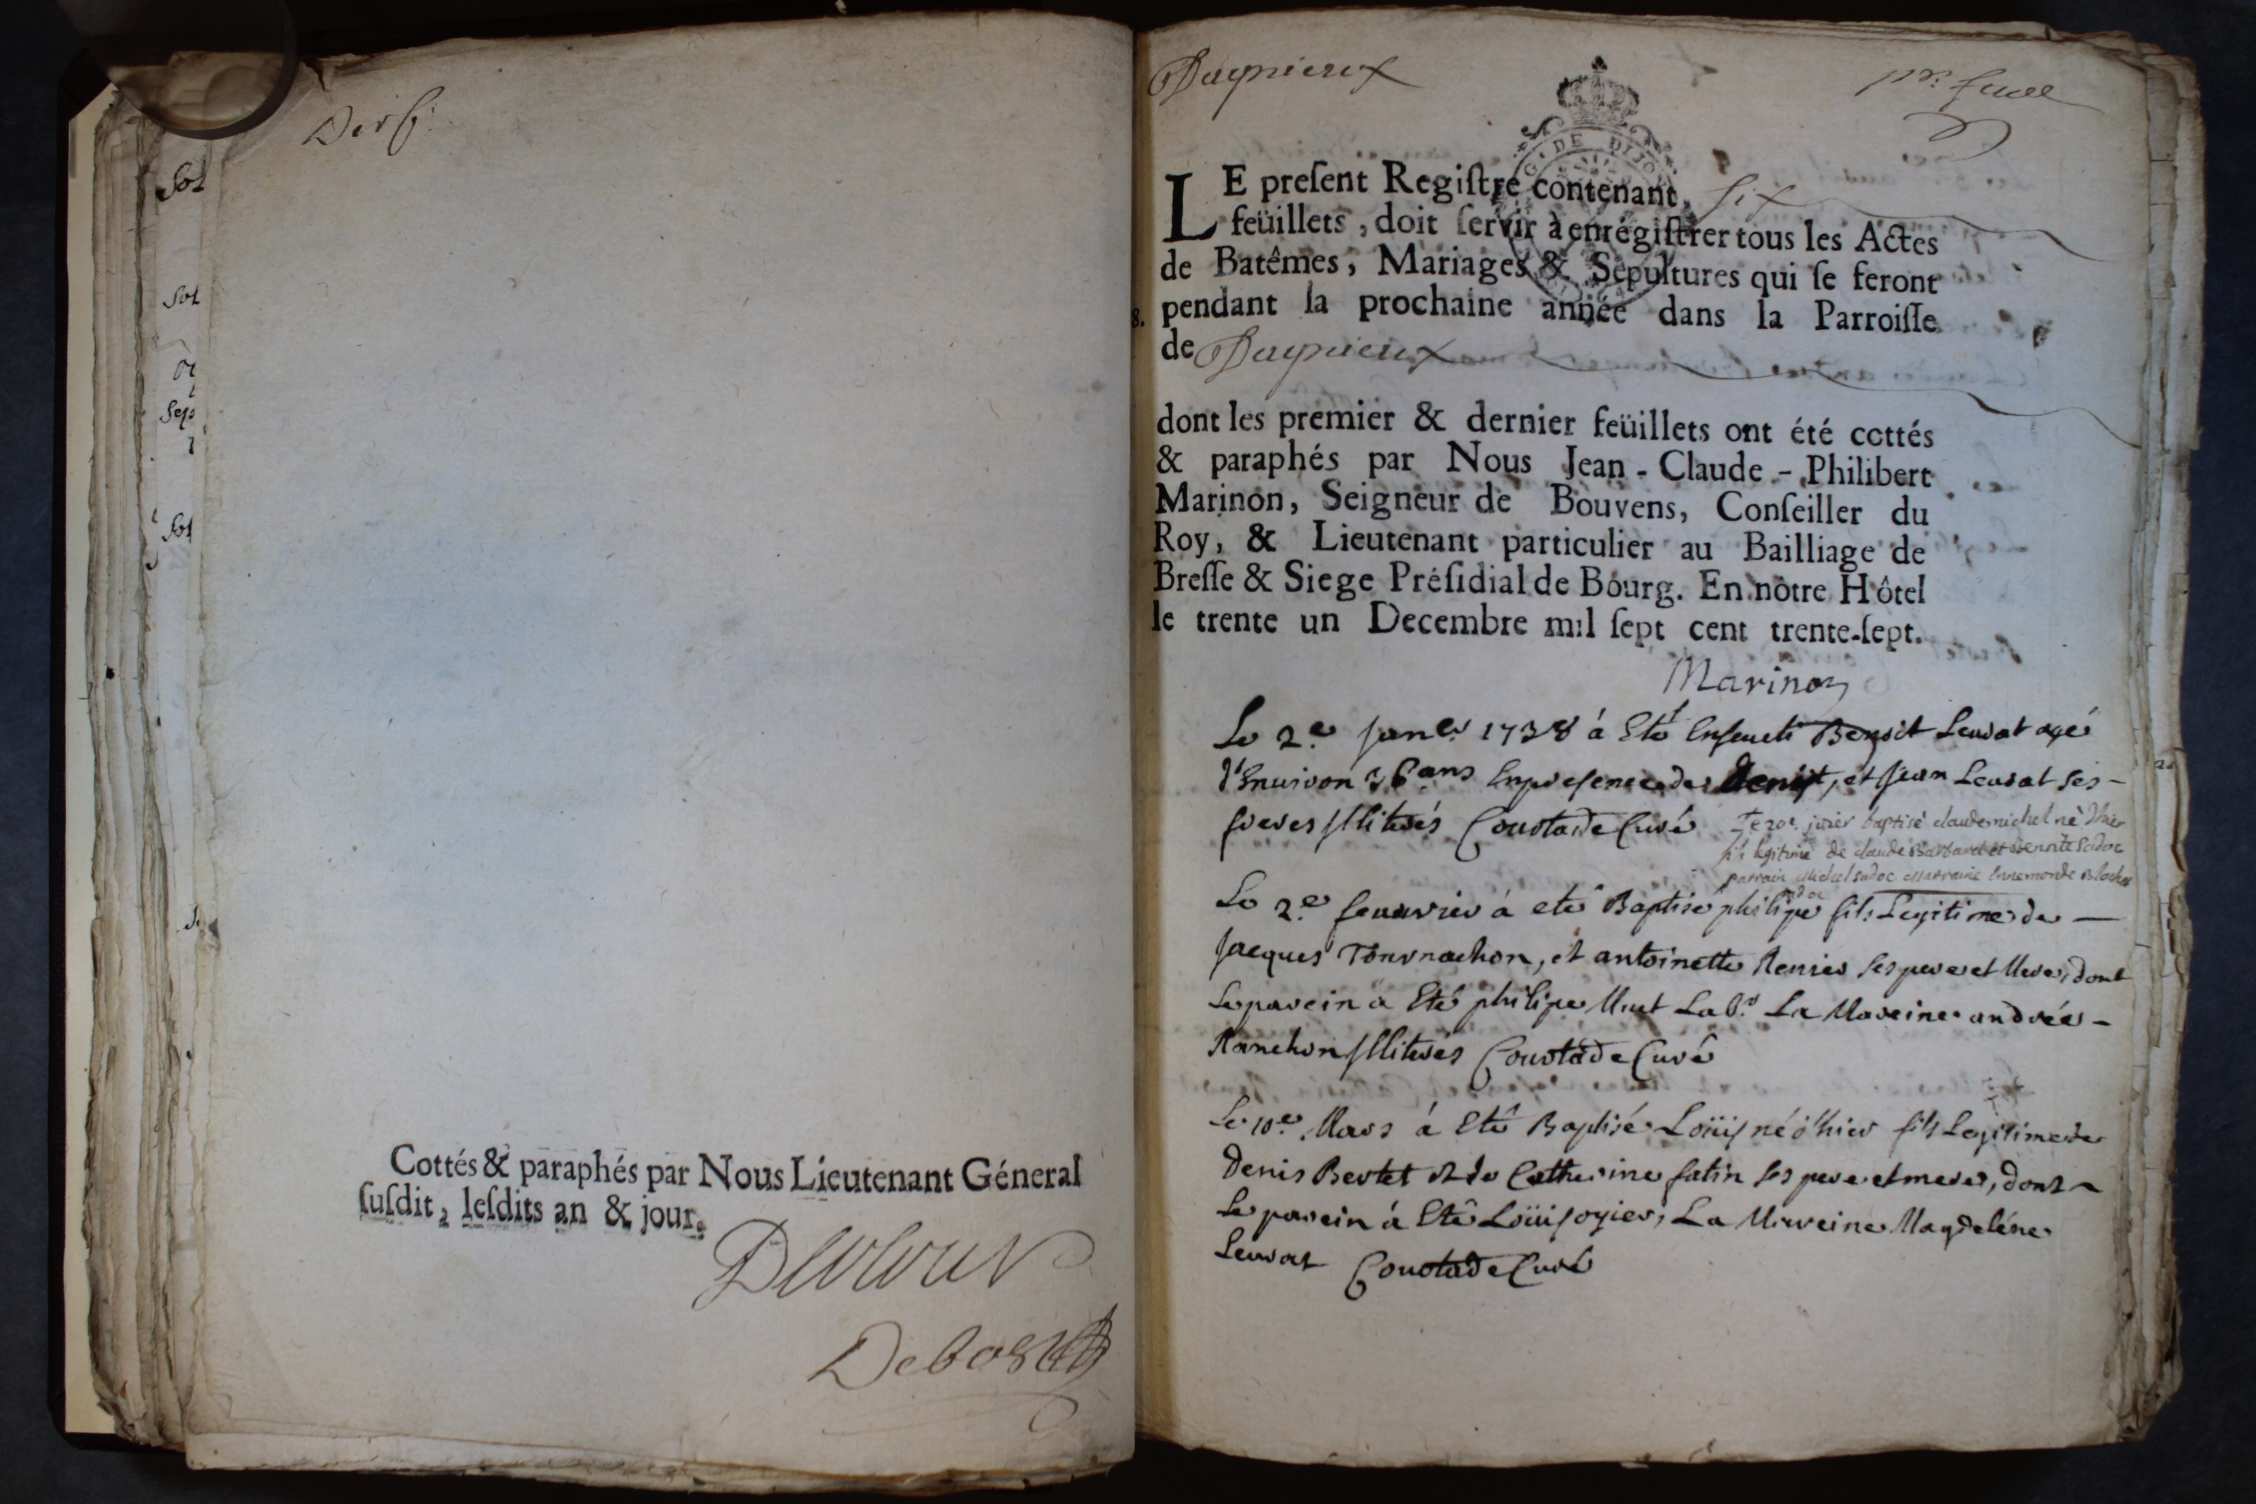 Cottés & paraphés par Nous Lieutenant Géneral
suſdit, leſdits an & jour.
Dagnieux
DE DIJON
LE preſent Regiſtre contenant six
feüillets, doit ſervir à enrégiſtrer tous les Actes
de Batêmes, Mariages & Sépultures qui ſe feront
pendant la prochaine année dans la Parroiſſe
de Dagnieux
dont les premier & dernier feüillets ont été cottés
& paraphés par Nous Jean - Claude - Philibert
Marinon, Seigneur de Bouvens, Conſeiller du
Roy, & Lieutenant particulier au Bailliage de
Breſſe & Siege Préſidial de Bourg. En nôtre Hôtel
le trente un Decembre mil ſept cent trente-ſept.
Marinon
Le 2.e Janer 1738 á Eté Enseueli Benoit Leurat agé
d'Enuiron ans En presence de Denis, et Jean Leurat ses -
freres Illiterés Coustade Curé
Le 20e. jvier baptisé claude michel né d'hier
fils legitime de claude et Sadoc
parrain Michel Sadoc Marraine
Le 2.e feuurier á eté Baptisé philipe fils Legitime de -
Jacques Tournachon, et antoinette ses pere et Mere, dont
Le parein a Eté philipe La Mareine andrée -
Ranchon Illiterés Coustade Curé
Le 10.e Mars á Eté Baptisé Loüis né d'hier fils Legitime de
Denis Bertet et de Catherine fatin ses pere et mere, dont
Le parein á Eté Loüis ogier, La Mareine Magdeléne
Leurat Coustade Curé